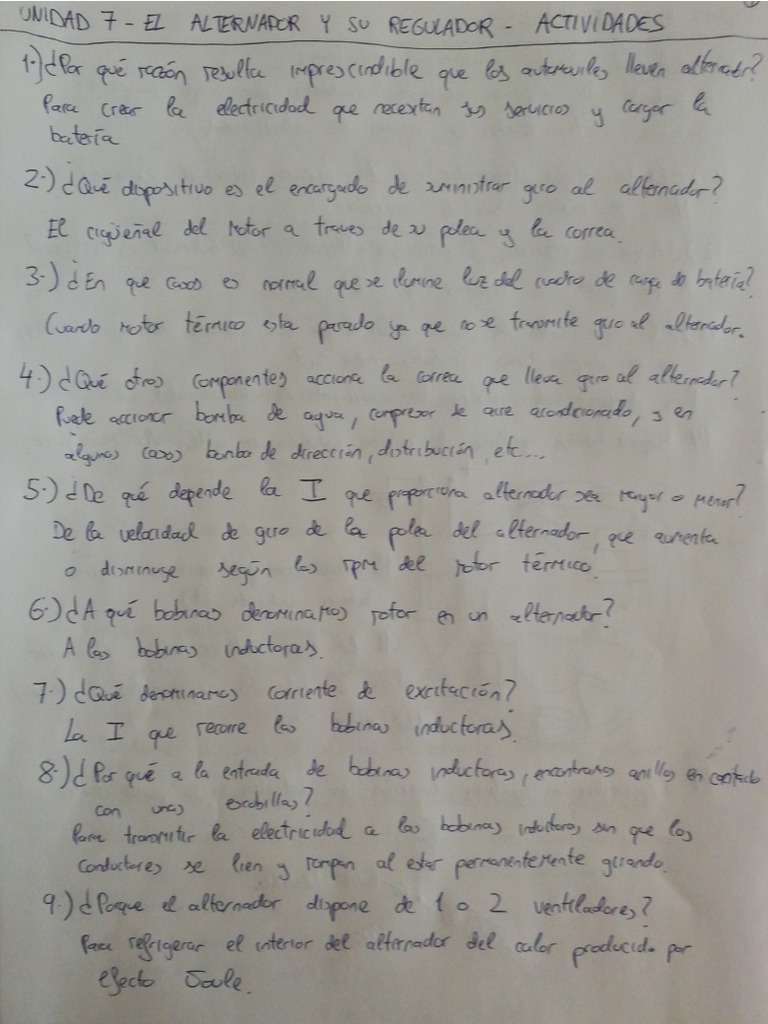 UNIDAD 7 - EL ALTERNADOR Y SU REGULADOR - ACTIVIDADES
1-) ¿Por qué razón resulta imprescindible que los automoviles lleven alternador?
Para crear la electricidad que necesitan sus servicios y cargar la
batería
2-) ¿Qué dispositivo es el encargado de suministrar giro al alternador?
El cigüeñal del motor a traves de su polea y la correa.
3-) ¿En que casos es normal que se ilumine luz del cuadro de carga de batería?
Cuando motor térmico esta parado ya que no se transmite giro al alternador.
4-) ¿Qué otros componentes acciona la correa que lleva giro al alternador?
Puede accionar bomba de agua, compresor de aire acondicionado, y en
algunos casos bomba de dirección, distribución, etc...
5-) ¿De qué depende la I que proporciona alternador sea mayor o menor?
De la velocidad de giro de la polea del alternador, que aumenta
o disminuye según las rpm del motor térmico.
6-) ¿A qué bobinas denominamos rotor en un alternador?
A las bobinas inductoras.
7-) ¿Qué denominamos corriente de excitación?
La I que recorre las bobinas inductoras.
8-) ¿Por qué a la entrada de bobinas inductoras, encontramos anillos en contacto
con unas escobillas?
Para transmitir la electricidad a las bobinas inductoras sin que los
conductores se lien y rompan al estar permanentemente girando.
9-) ¿Poque el alternador dispone de 1 o 2 ventiladores?
Para refrigerar el interior del alternador del calor producido por
efecto Joule.